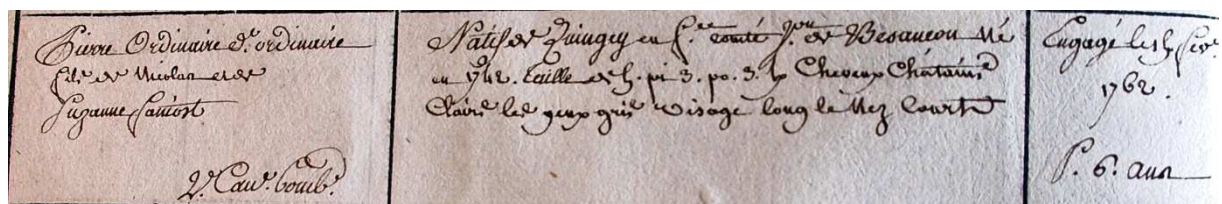 Pierre Ordinaire d.t ordinaire
fils de Nicolas et de
Suzanne
2.e Can.r bomb.r
Natif de Quingey en f.che comté J.on de Besancon né
en 1742. taille de 5. pi 3. po. 3. l. Cheveux Chatains
Clairs les yeux gris Visage long le Nez Court
Engagé le 15 fev.r
1762.
P. 6. ans